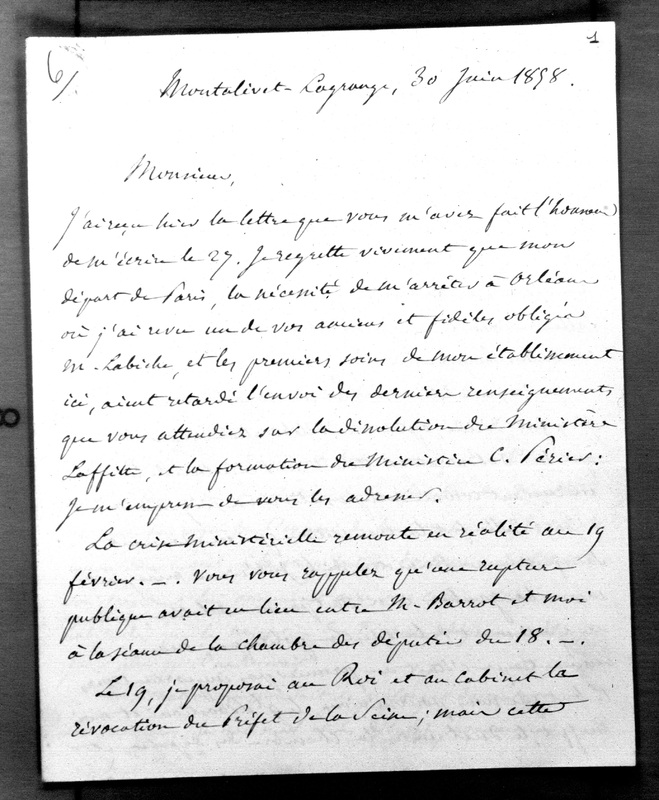 6/.
1
Montalivet-Lagrange, 30 Juin 1858.
Monsieur,
J'ai reçu hier la lettre que vous m'avez fait l'honneur
de m'écrire le 27. Je regrette vivement que mon
départ de Paris, la nécessité de m'arrêter à Orléans
où j'ai revu un de vos anciens et fidèles obligés
M. Labiche, et les premiers soins de mon établissement
ici, aient retardé l'envoi des derniers renseignements
que vous attendiez sur la dissolution du Ministère
Laffitte, et la formation du Ministère C. Périer:
Je m'empresse de vous les adresser.
La crise ministérielle remonte en réalité au 19
février. _ . Vous vous rappelez qu'une rupture
publique avait eu lieu entre M. Barrot et moi
à la séance de la chambre des députés du 18. _ .
Le 19, je proposai au Roi et au cabinet la
révocation du Préfet de la Seine; mais cette
8